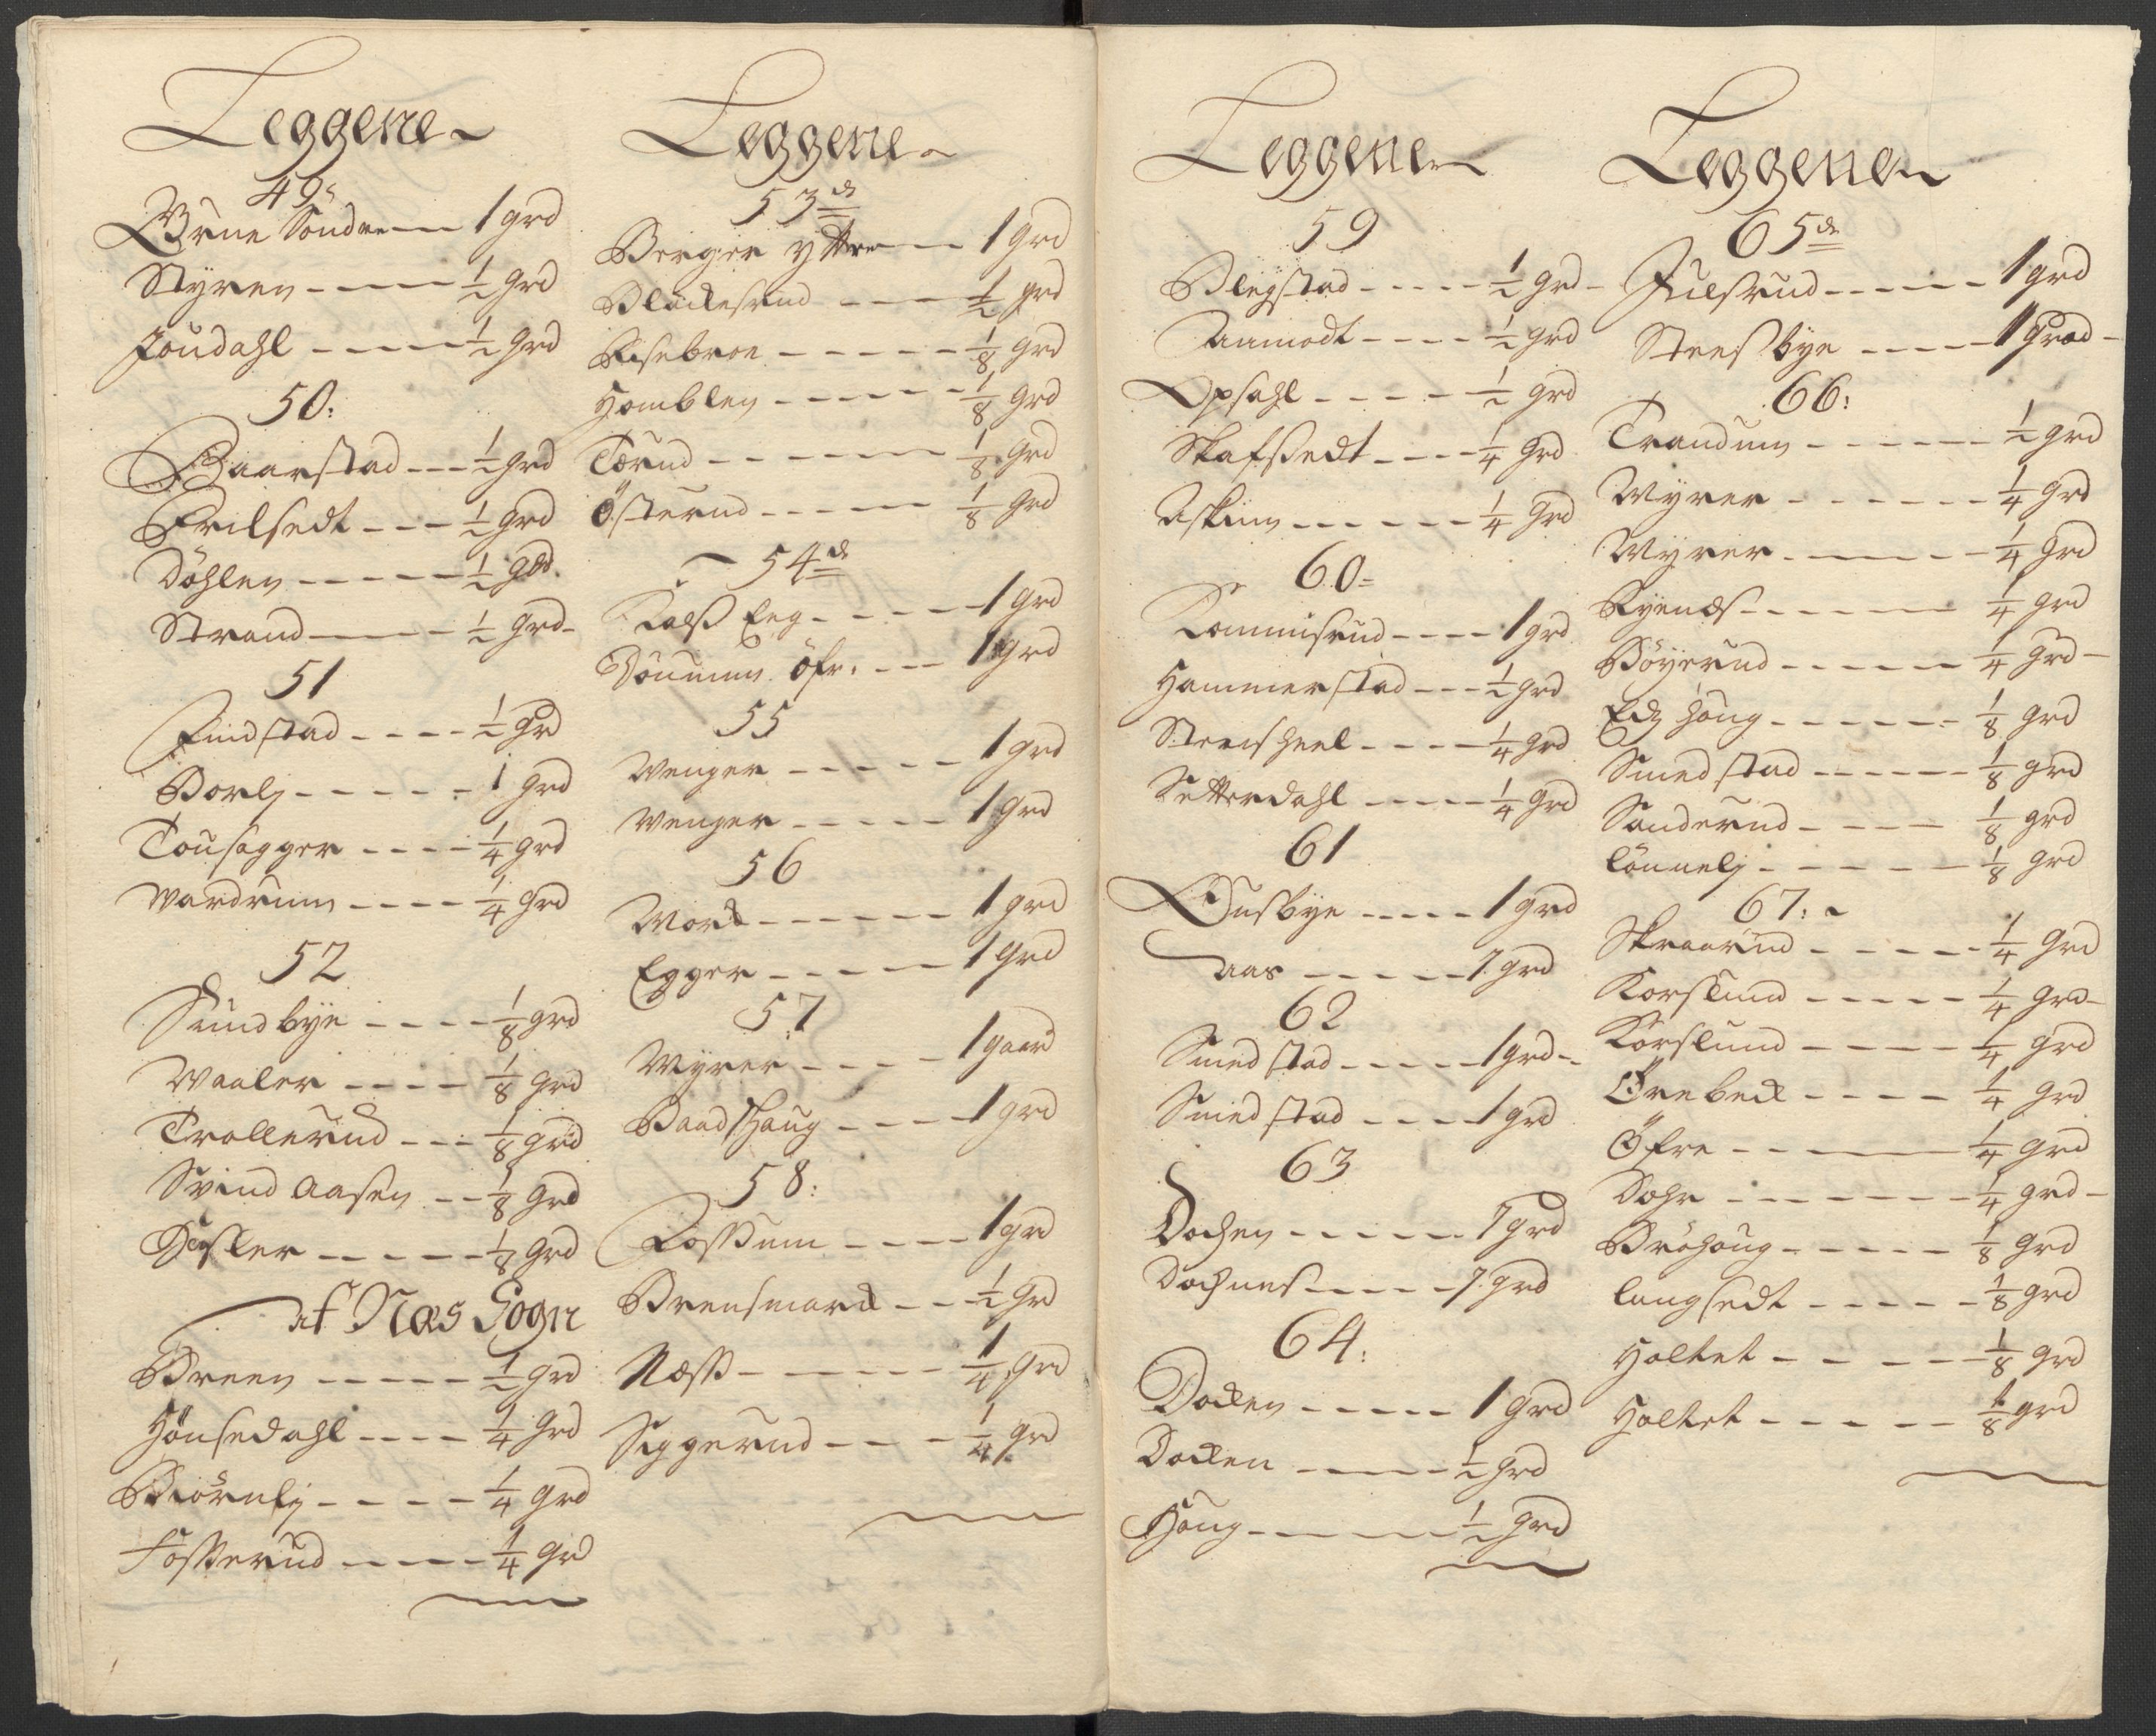 Leggene
49
Brune Söndre 1 grd
Styren ½ grd
Joudahl ½ grd
50:
Baarstad ½ grd
Frilsedt ½ grd
Döhlen ½ grd
Strand ½ grd
51
Findstad ½ grd
Borlj 1 grd
Tousagger ¼ grd
Wardrum ¼ grd
52
Sundbye ⅛ grd
Waaler ⅛ grd
Trollerud ⅛ grd
Svind Aasen ⅛ grd
⅛ grd
af Næs Sogn
Breen ½ grd
Hönsedahl ¼ grd
Biörnlj ¼ grd
Fosserud ¼ grd
Leggene
53de
Berger yttre 1 grd
Blackesrud ½ grd
Risebroe ⅛ grd
Homblen ⅛ grd
Tærud ⅛ grd
Österud ⅛ grd
54de
Kalß Eeg 1 grd
öfr: 1 grd
55
Wenger 1 grd
Wenger 1 grd
56
Work 1 grd
Egger 1 grd
57
Myrer 1 gaard
Baadshaug 1 grd
58:
Roßum 1 grd
Brensmork ½ grd
Næss ¼ grd
Siggerud ¼ grd
Leggene
59
Blegstad ½ grd
Aamodt ½ grd
Opsahl ½ grd
Skafsedt ¼ grd
Askim ¼ grd
60
Tommisrud 1 grd
Hammerstad ½ grd
Steensheel ¼ grd
Setterdahl ¼ grd
61
Husbye 1 grd
Aas 1 grd
62
Smedstad 1 grd
Smedstad 1 grd
63
Dochen 1 grd
Dochnes 1 grd
64:
Docken 1 grd
Docken ½ grd
Houg ½ grd
Leggene
65de
Julsrud 1 grd
Steensbye 1 grd
66:
Trandum ½ grd
Myrer ¼ grd
Myrer ¼ grd
Ryenæs ¼ grd
Böyerud ¼ grd
Edz houg ⅛ grd
Smedstad ⅛ grd
Sanderud ⅛ grd
Lönnelj ⅛ grd
67:
Skraarud ¼ grd
Korslund ¼ grd
Korslund ¼ grd
Ørebeck ¼ grd
Öfre ¼ grd
Dahr ¼ grd
Bröhoug ⅛ grd
Langsedt ⅛ grd
Holtet ⅛ grd
Holtet ⅛ grd